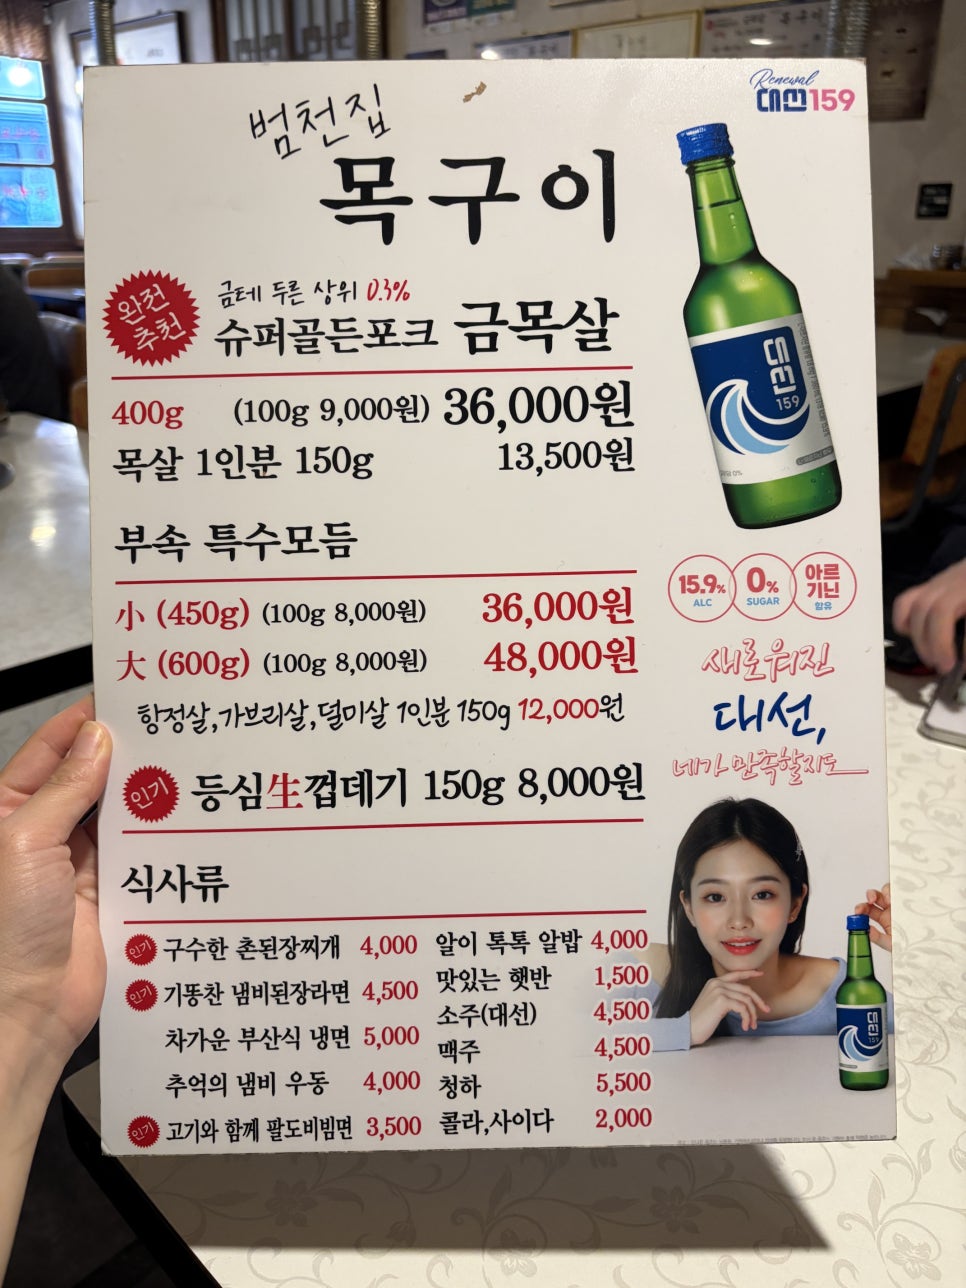 Renewal
대선159
범천집
목구이
완전
추천
금테 두른 상위 0.3%
슈퍼골든포크 금목살
400g (100g 9,000원) 36,000원
목살 1인분 150g 13,500원
부속 특수모듬
小 (450g) (100g 8,000원) 36,000원
大 (600g) (100g 8,000원) 48,000원
항정살,가브리살,덜미살 1인분 150g 12,000원
인기 등심生껍데기 150g 8,000원
식사류
인기 구수한 촌된장찌개 4,000
인기 기똥찬 냄비된장라면 4,500
차가운 부산식 냉면 5,000
추억의 냄비 우동 4,000
인기 고기와 함께 팔도비빔면 3,500
알이 톡톡 알밥 4,000
맛있는 햇반 1,500
소주(대선) 4,500
맥주 4,500
청하 5,500
콜라,사이다 2,000
대선
159
15.9% ALC
0% SUGAR
아르기닌 함유
새로워진
대선,
네가 만족할지도
대선
159